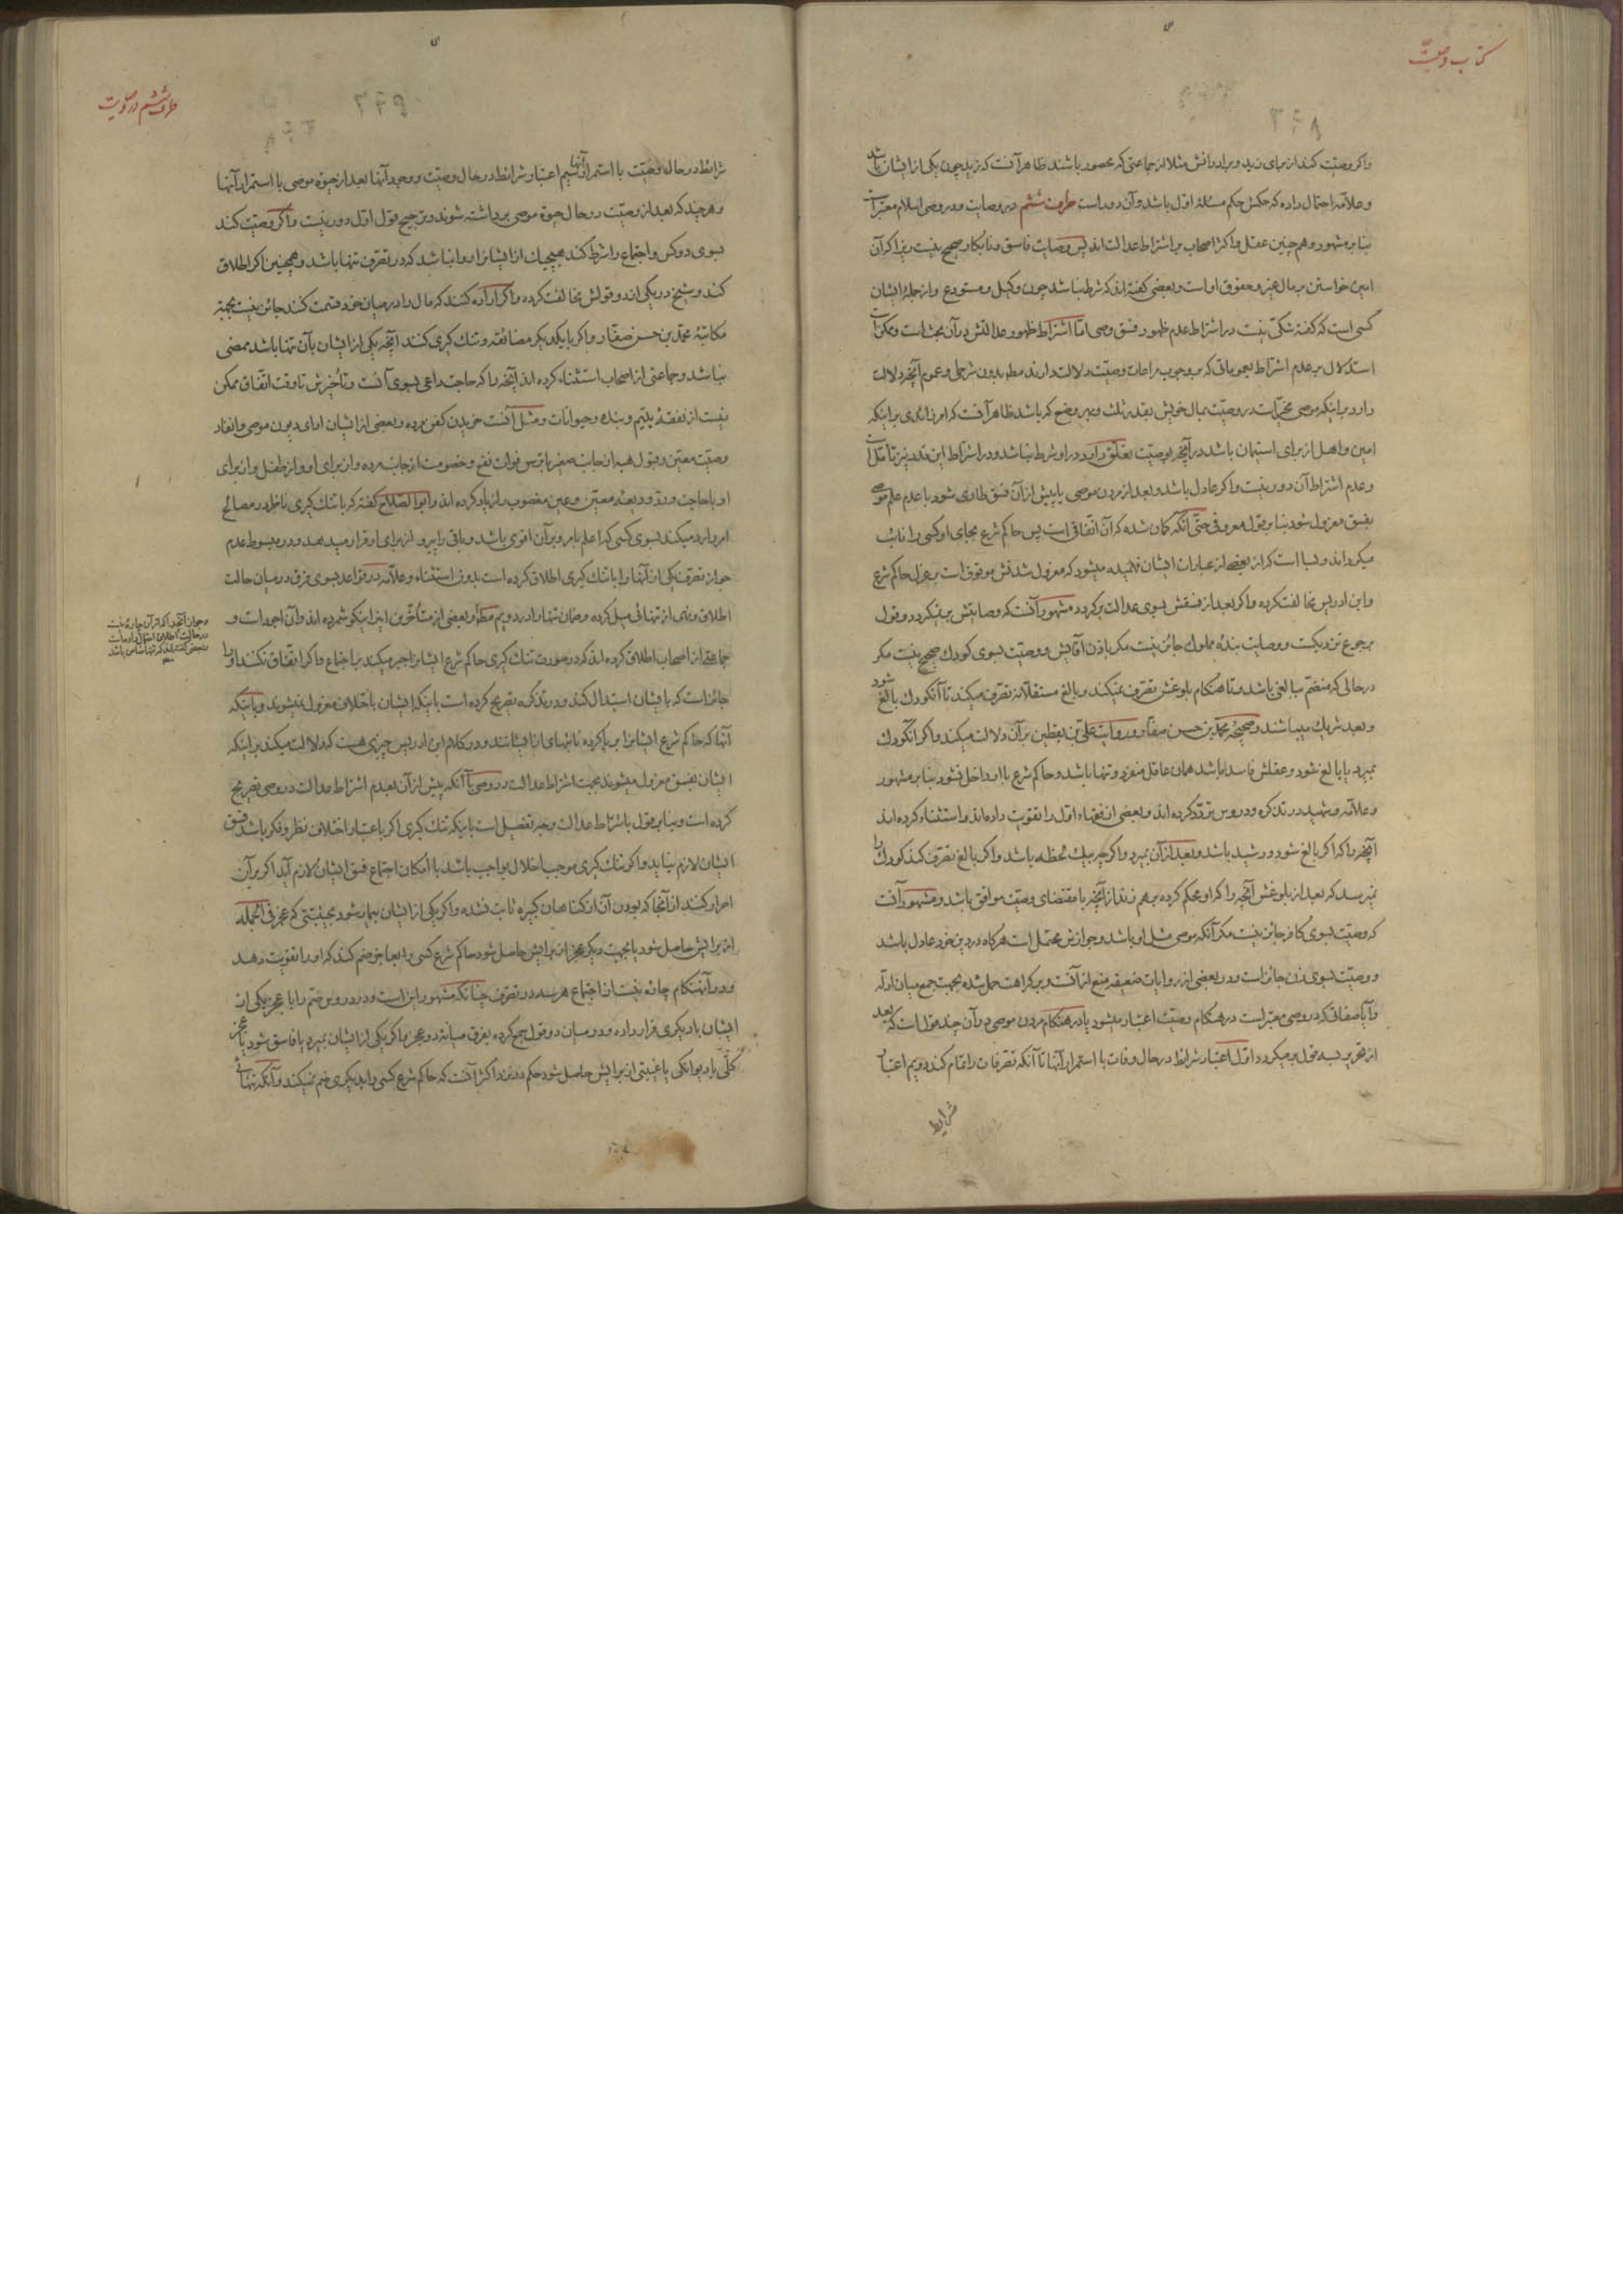 کتاب وصیت
واگر وصیت کند از برای زید و برادرانش مثلا از جماعتی که محصور باشند ظاهر آنست که زید چون یکی از ایشان باشد
و علامه احتمال داده که حکمش حکم مسئله اول باشد و آن دور است طرف ششم در وصایت و در وصی اسلام معتبر است
بنا بر مشهور و هم چنین عقل و اکثر اصحاب بر اشتراط عدالت اند پس وصایت فاسق و نابکار صحیح نیست زیرا که آن
امین خواستن بر مال غیر و حقوق او است و بعضی گفته اند که شرط نباشد چون وکیل و مستودع و از جمله ایشان
کسی است که گفته شکی نیست در اشتراط عدم ظهور فسق وصی اما اشتراط ظهور عدالتش در آن بحث است و ممکن است
استدلال بر عدم اشتراط بعموماتی که بر وجوب مراعات وصیت دلالت دارند مطلقا بدون شرطی و عموم آنچه دلالت
دارد بر اینکه موصی مخیر است در وصیت بمال خویش بقدر ثلث و بهر وضع که باشد ظاهر آنست که امر زائدی بر اینکه
امین و اهل از برای استیمان باشد در آنچه بوصیت تعلق دارد در او شرط نباشد و در اشتراط این قدر نیز تأمل است
و عدم اشتراط آن دور نیست و اگر عادل باشد و بعد از مردن موصی یا پیش از آن فسق طاری شود با عدم علم موصی
بفسق معزول شود بنا بر قول معروفی حتی آنکه گمان شده که آن اتفاقی است پس حاکم شرع بجای او کسی را نایب
میگرداند و بسا است که از بعضی از عبارات ایشان فهمیده میشود که معزول شدنش موقوف است بر عزل حاکم شرع
و ابن ادریس مخالفت کرده و اگر بعد از فسقش بسوی عدالت برگردد مشهور آنست که وصایتش برنمیگردد و قول
برجوع نزدیکست و وصایت بنده مملوک جائز نیست مگر باذن آقایش و وصیت بسوی کودک صحیح نیست مگر
درحالی که منضم ببالغی باشد و تا هنگام بلوغش تصرف نمیکند و بالغ مستقلانه تصرف میکند تا آنکودک بالغ شود
و بعد شریک میباشند و صحیحه محمد بن حسن صفار و روایت علی بن یقطین بر آن دلالت میکند و اگر آنکودک
بمیرد یا بالغ نشود و عقلش فاسد باشد همان عاقل منفرد و تنها باشد و حاکم شرع با او داخل نشود بنا بر مشهور
و علامه و شهید در تذکره و دروس تردد کرده اند و بعضی از فقهاء اول را تقویت داده اند و استثناء کرده اند
آنچه را که اگر بالغ شود و رشید باشد و بعد از آن بمیرد و اگر چه بیک لحظه باشد و اگر بالغ تصرف کند کودک را
نمیرسد که بعد از بلوغش آنچه را که او محکم کرده برهم زند از آنچه با مقتضای وصیت موافق باشد و مشهور آنست
که وصیت بسوی کافر جائز نیست مگر آنکه موصی مثل او باشد و جوازش محتمل است هرگاه در دین خود عادل باشد
و وصیت بسوی زن جائز است و در بعضی از روایات ضعیفه منع از آنست و بر کراهت حمل شده بجهت جمع میان ادله
و آیا صفاتی که در وصی معتبر است در هنگام وصیت اعتبار میشود یا در هنگام مردن موصی در آن چند قول است که بعد
از تحریر بسه قول برمیگردد اول اعتبار شرائط در حال وفات با استمرار آنها تا آنکه تصرفات را تمام کند دویم اعتبار
شرایط
طرف ششم در وصایت
شرائط در حال وصیت با استمرار آنها سیم اعتبار شرائط در حال وصیت و وجود آنها بعد از حیوة موصی با استمرار آنها
و هر چند که بعد از وصیت در حال حیوة موصی برداشته شوند و ترجیح قول اول دور نیست و اگر وصیت کند
بسوی دو کس و اجتماع را شرط کند هیچیک از ایشانرا روا نباشد که در تصرف تنها باشد و همچنین اگر اطلاق
کند و شیخ در یکی از دو قولش مخالفت کرده و اگر اراده کنند که مال را در میان خود قسمت کنند جائز نیست بجهة
مکاتبه محمد بن حسن صفار و اگر با یکدیگر مضائقه و تنک گیری کنند آنچه یکی از ایشان بآن تنها باشد ممضی
نباشد و جماعتی از اصحاب استثناء کرده اند آنچه را که حاجت داعی بسوی آنست و تأخیرش تا وقت اتفاق ممکن
نیست از نفقه یتیم و بنده و حیوانات و مثل آنست خریدن کفن مرده و بعضی از ایشان ادای دیون موصی و انفاد
وصیت معین و قبول هبه از جانب صغیر با ترس فوات نفع و خصومت از جانب مرده و از برای او و از طفل و از برای
او با حاجت و رد ودیعه معین و عین مغصوب را زیاد کرده اند و ابو الصلاح گفته که با تنک گیری ناظر در مصالح
امر را رد میکند بسوی کسی که اعلم بامر و بر آن اقوی باشد و باقی را پیرو از برای او قرار میدهد و در مبسوط عدم
جواز تصرف یکی از آنها را با تنک گیری اطلاق کرده است بدون استثناء و علامه در قواعد بسوی فرق در میان حالت
اطلاق و نهی از تنهائی میل کرده و ضمان تنها را در دویم مطلقا و بعضی از متأخرین اینرا نیکو شمرده اند و آن اجود است و
جماعتی از اصحاب اطلاق کرده اند که در صورت تنک گیری حاکم شرع ایشانرا جبر میکند بر اجتماع و اگر اتفاق نکنند او را
جائز است که با ایشان استبدال کند و در تذکره تصریح کرده است باینکه ایشان باختلاف معزول نمیشوند و باینکه
آنها که حاکم شرع ایشانرا برپا کرده نائبهای از ایشانند و در کلام ابن ادریس چیزی هست که دلالت میکند بر اینکه
ایشان بفسق معزول میشوند بجهت اشتراط عدالت در وصی با آنکه پیش از آن بعدم اشتراط عدالت در وصی تصریح
کرده است و بنا بر قول باشتراط عدالت وجه تفصیل است باینکه تنک گیری اگر باعتبار اختلاف نظر و فکر باشد فسق
ایشان لازم نیاید و اگر تنک گیری موجب اخلال بواجب باشد با امکان اجتماع فسق ایشان لازم آید اگر بر آن
اصرار کنند از آنجا که بودن آن از گناهان کبیره ثابت نشده و اگر یکی از ایشان بیمار شود بحیثیتی که عجز فی الجمله
از برایش حاصل شود یا بجهت دیگر عجز از برایش حاصل شود حاکم شرع کسی را بعاجز ضم کند که او را تقویت دهد
و در آنهنگام چاره نیست از اجتماع هر سه در تصرف چنانکه مشهور این است و در دروس ضم را با عجز یکی از
ایشان بدیگری قرار داده و در میان دو قول جمع کرده بفرق میانه دو عجز و اگر یکی از ایشان بمیرد یا فاسق شود یا عجز
کلی یا دیوانگی یا غیبتی از برایش حاصل شود حکم در نزد اکثر آنست که حاکم شرع کسی را بدیگری ضم نمیکند و آنکه تنها